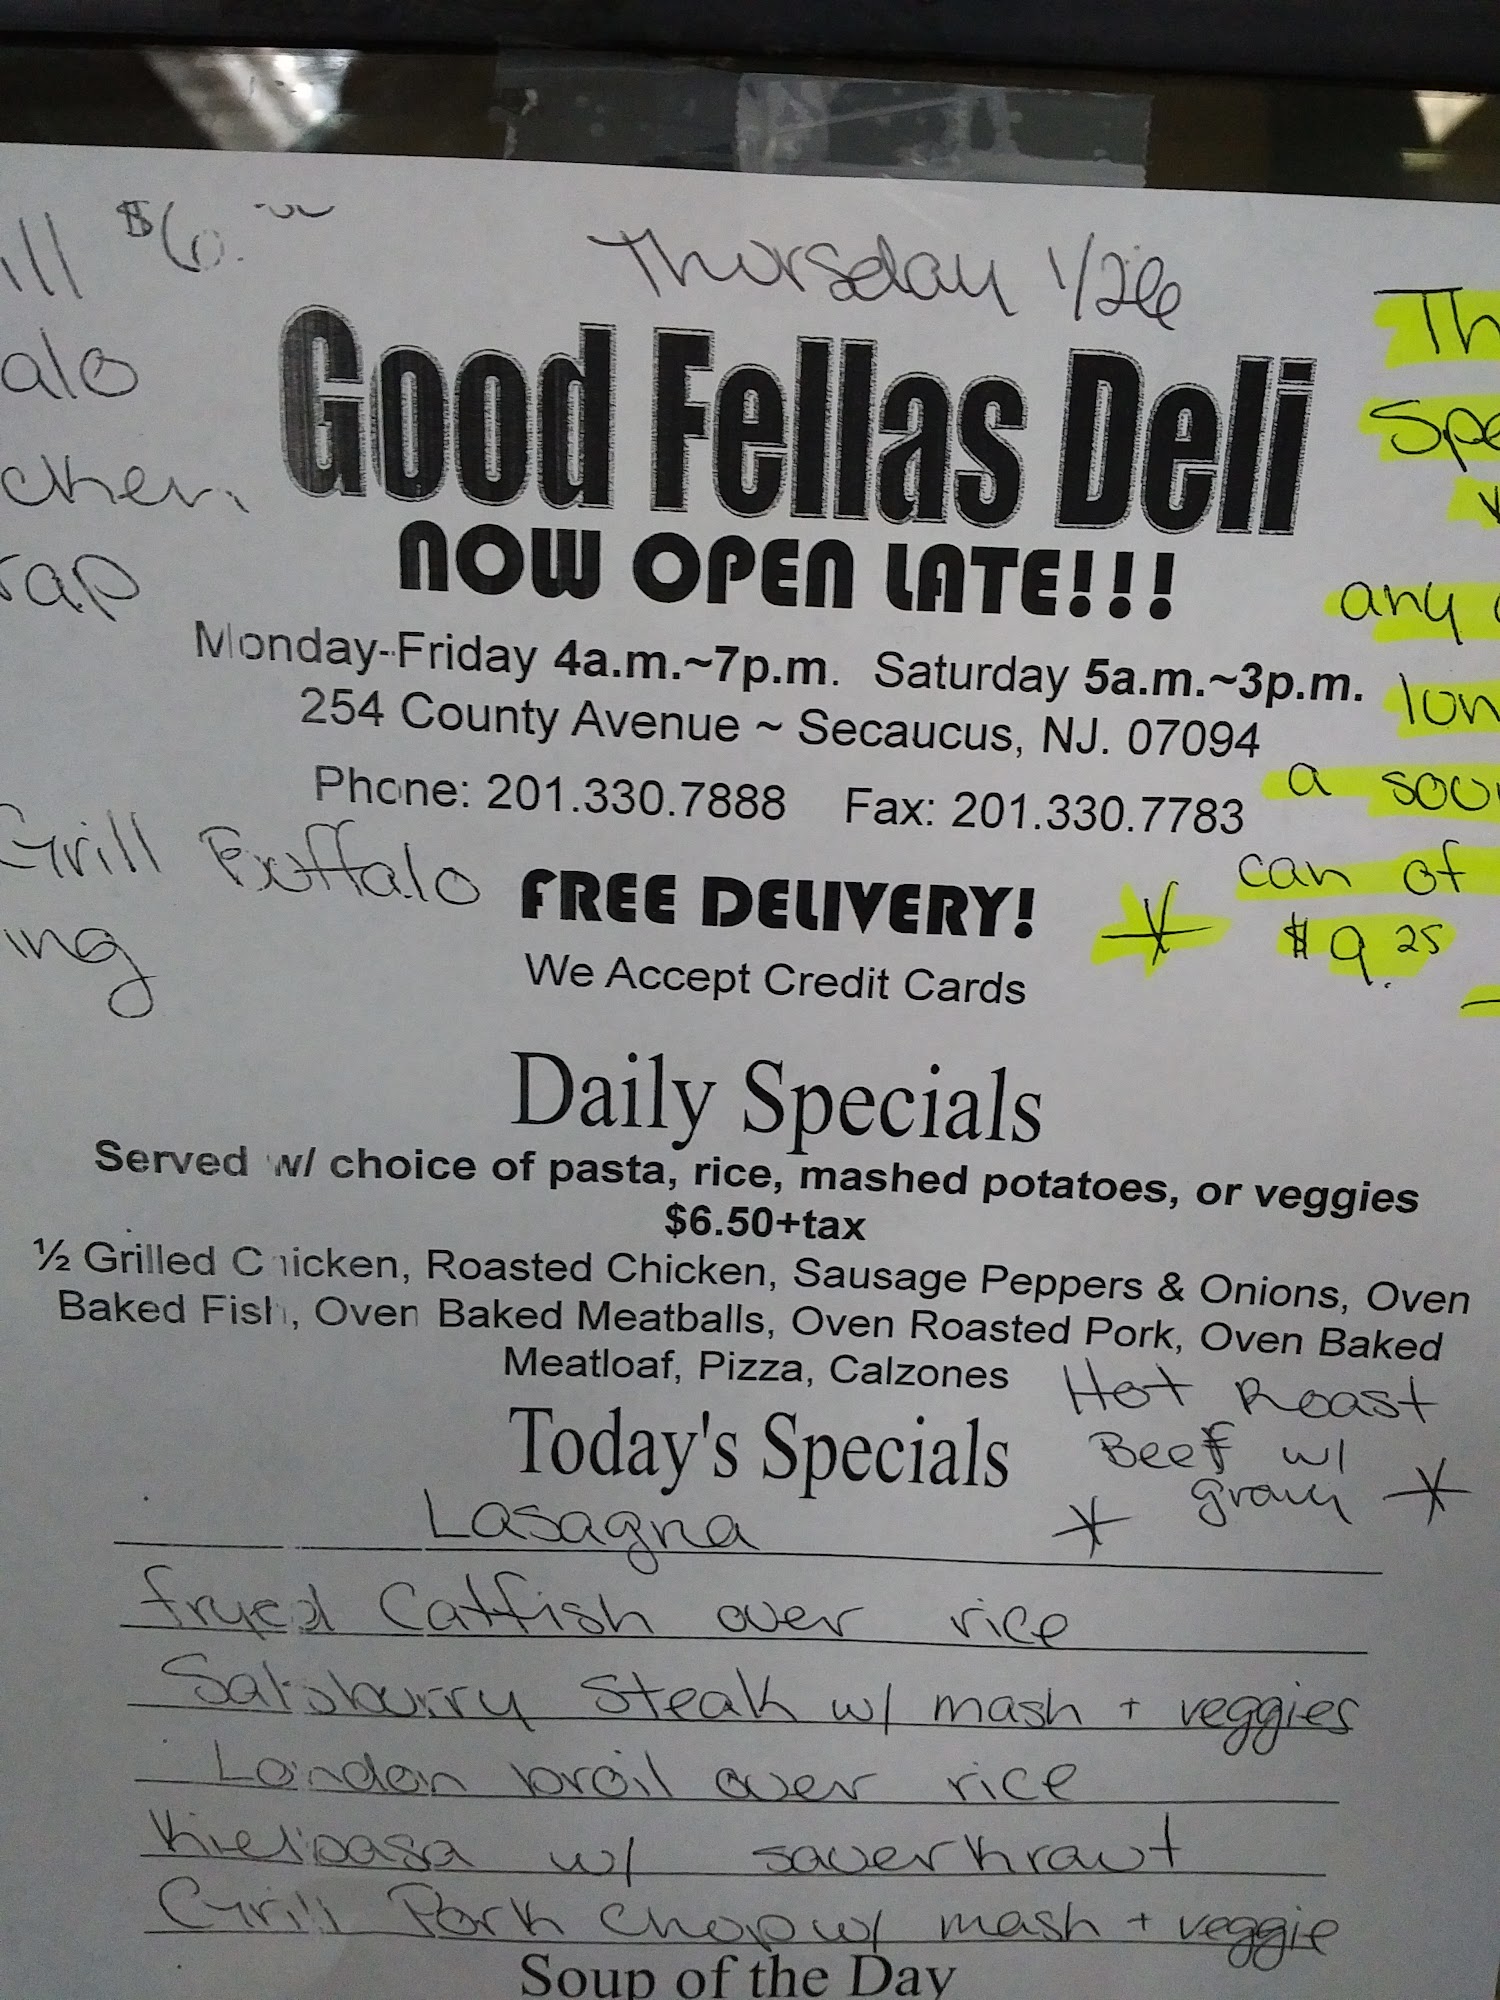 $6.
Thursday 1/26
Good Fellas Deli
NOW OPEN LATE!!!
Monday-Friday 4a.m.~7p.m. Saturday 5a.m.~3p.m.
254 County Avenue ~ Secaucus, NJ. 07094
Phone: 201.330.7888 Fax: 201.330.7783
Grill Buffalo
FREE DELIVERY!
We Accept Credit Cards
any
a
can of
$9.25
Daily Specials
Served w/ choice of pasta, rice, mashed potatoes, or veggies
$6.50+tax
½ Grilled Chicken, Roasted Chicken, Sausage Peppers & Onions, Oven
Baked Fish, Oven Baked Meatballs, Oven Roasted Pork, Oven Baked
Meatloaf, Pizza, Calzones
Hot Roast
Beef w/
gravy
Today's Specials
Lasagna
fryed Catfish over rice
Salsburry Steak w/ mash + veggies
London broil over rice
Kielbasa w/ sauerkraut
Grill Pork Chop w/ mash + veggie
Soup of the Day